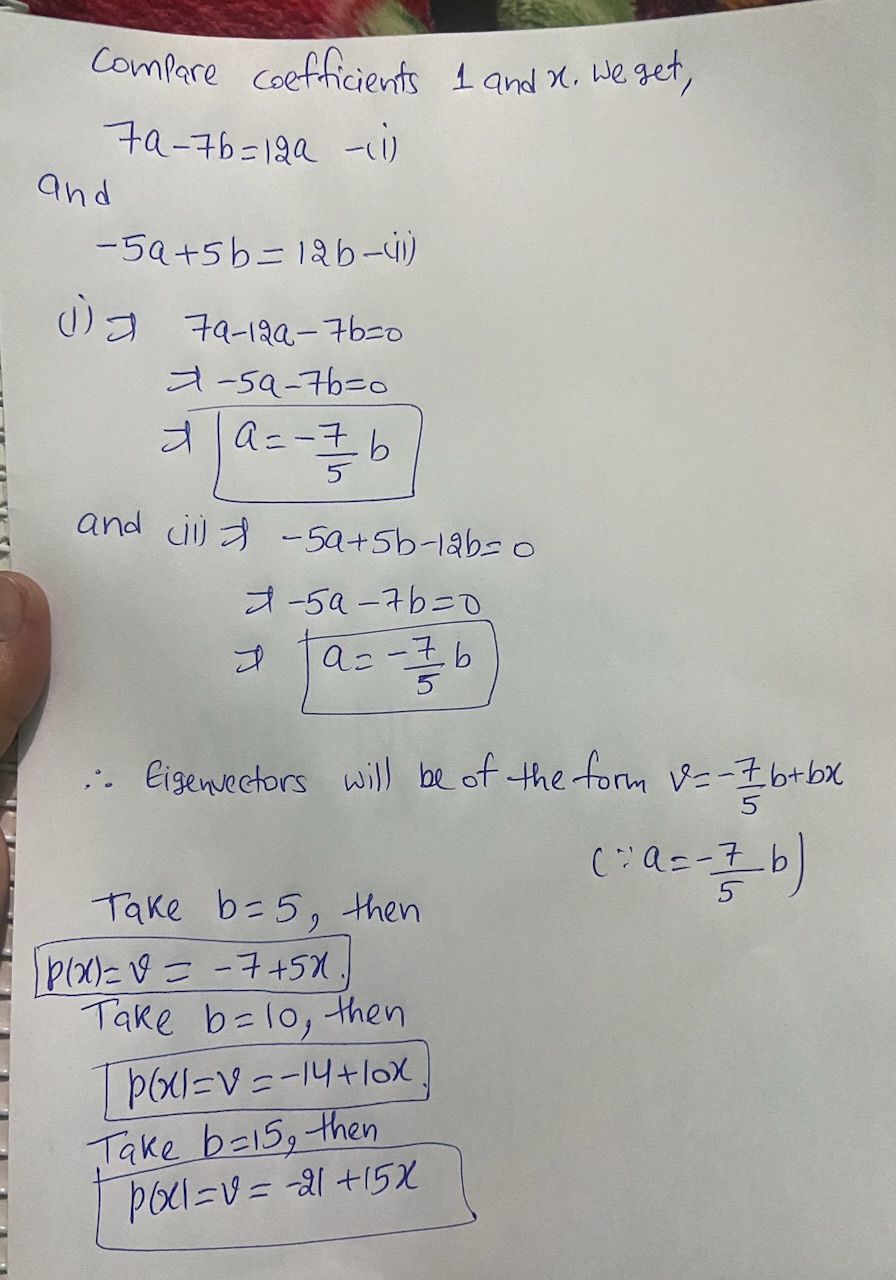 Compare coefficients 1 and x. We get,
7a-7b=12a -(i)
and
-5a+5b=12b-(ii)
(i) ⇒ 7a-12a-7b=0
⇒ -5a-7b=0
⇒ a=-7/5 b
and (ii) ⇒ -5a+5b-12b=0
⇒ -5a-7b=0
⇒ a=-7/5 b
∴ Eigenvectors will be of the form v=-7/5 b+bx
(∵ a=-7/5 b)
Take b=5, then
p(x)=v=-7+5x.
Take b=10, then
p(x)=v=-14+10x.
Take b=15, then
p(x)=v=-21+15x